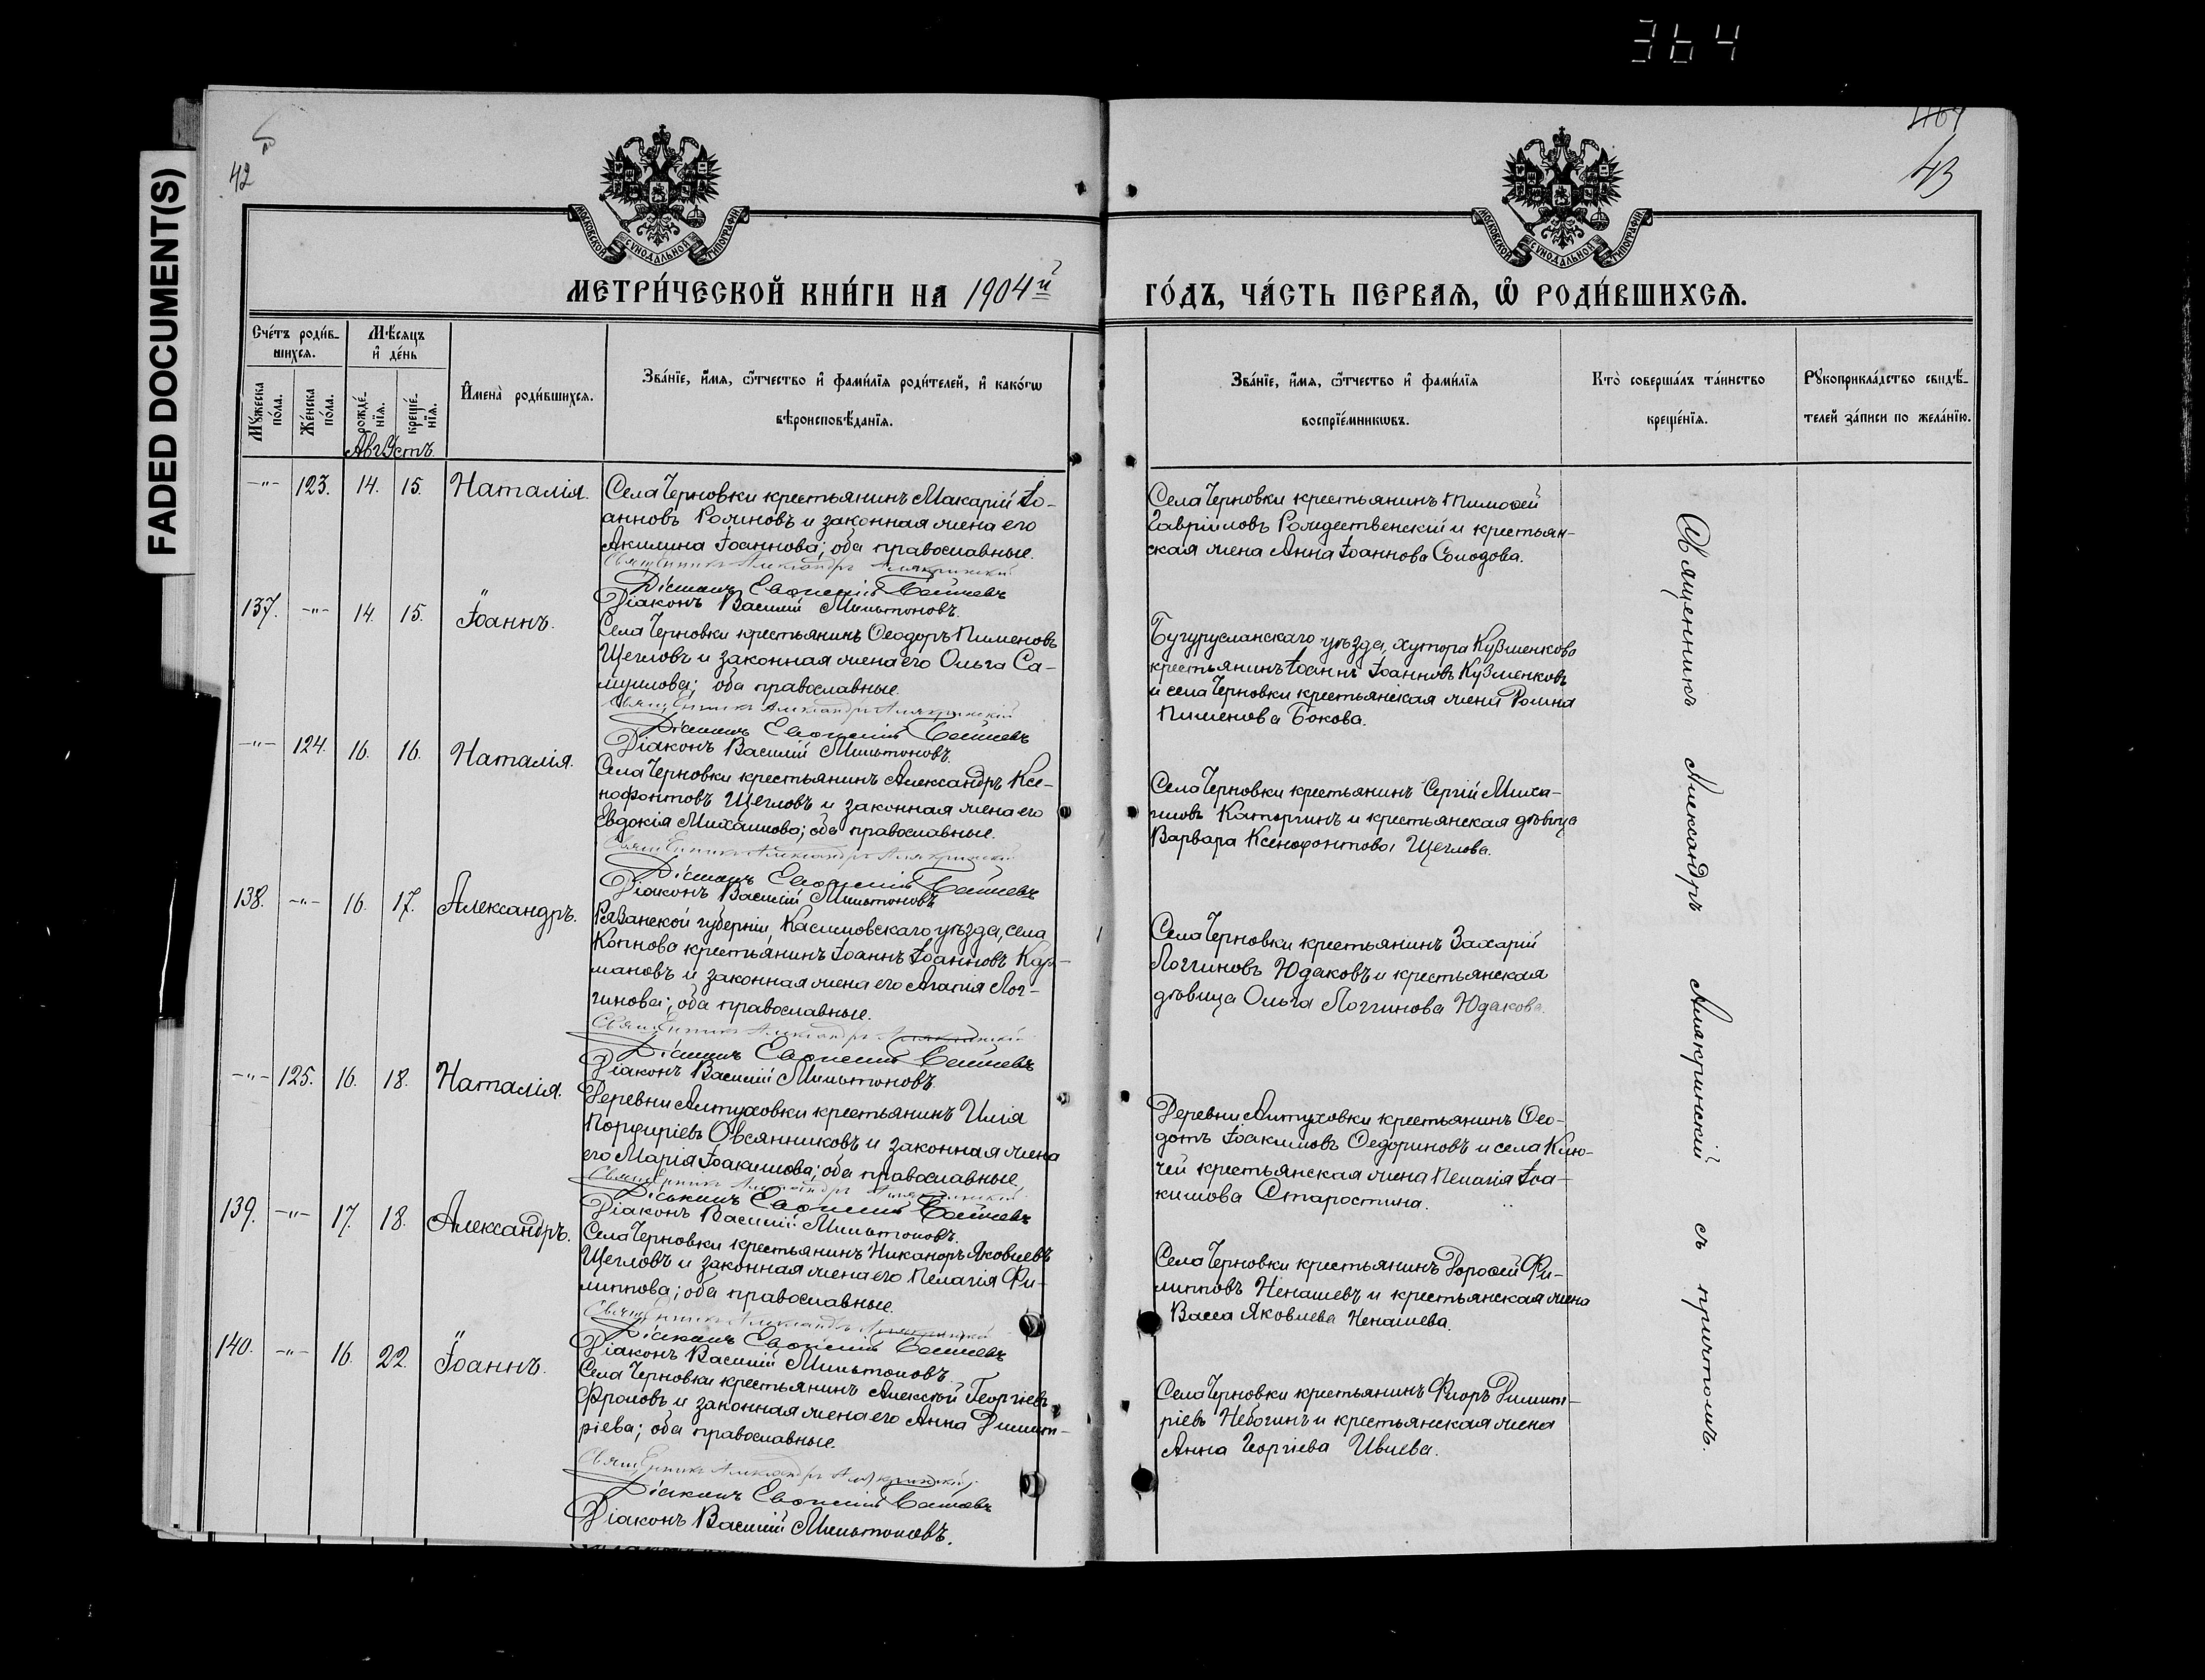 364
FADED DOCUMENT(S)
42
43
МОСКОВСКОЙ СѴНОДАЛЬНОЙ ТИПОГРАФІИ
МОСКОВСКОЙ СѴНОДАЛЬНОЙ ТИПОГРАФІИ
МЕТРИ́ЧЕСКОЙ КНИ́ГИ НА 1904й
ГО́ДЪ, ЧА́СТЬ ПЕРВАЯ, Ѡ РОДИ́ВШИХСЯ.
Сче́тъ роди́в-
шихся.
Мѣ́сяцъ
и де́нь
Мꙋжеска по́ла.
Же́нска по́ла.
рожде́-
нія.
креще́-
нія.
Имена̀ роди́вшихся.
Зва́ніе, и́мя, ѻ́тчество и фами́лія роди́телей, и како́гѡ
вѣроисповѣ́данія.
Зва́ніе, и́мя, ѻ́тчество и фами́лія
воспріе́мникѡвъ.
Кто̀ соверша́лъ та́инство
креще́нія.
Рꙋкоприкла́дство свидѣ́-
телей за́писи по жела́нію.
Августъ.
-"- 123. 14. 15. Наталія.
Села Черновки крестьянинъ Макарій Іо-
анновъ Роминовъ и законная жена его
Акилина Іоаннова; оба православные.
Священникъ Александръ Алякринскій
Діаконъ Василій Мильтоновъ.
Села Черновки крестьянинъ Тимоѳей
Гавріиловъ Рождественскій и крестьян-
ская жена Анна Іоаннова Солодова.
137. -"- 14. 15. Іоаннъ.
Села Черновки крестьянинъ Ѳеодоръ Пименовъ
Щегловъ и законная жена его Ольга Са-
муилова; оба православные.
Священникъ Александръ Алякринскій
Діаконъ Василій Мильтоновъ.
Бугурусланскаго уѣзда, хутора Кузменкова
крестьянинъ Іоаннъ Іоанновъ Кузменковъ
и села Черновки крестьянская жена
Пименова Бокова.
-"- 124. 16. 16. Наталія.
Села Черновки крестьянинъ Александръ Ксе-
нофонтовъ Щегловъ и законная жена его
Евдокія Михаилова; оба православные.
Священникъ Александръ Алякринскій
Діаконъ Василій Мильтоновъ
Села Черновки крестьянинъ Сергій Миха-
иловъ Каторгинъ и крестьянская дѣвица
Варвара Ксенофонтова Щеглова.
138. -"- 16. 17. Александръ.
Рязанской губерніи, Касимовскаго уѣзда, села
Копнова крестьянинъ Іоаннъ Іоанновъ Кар-
мановъ и законная жена его Агапія Лог-
гинова; оба православные.
Священникъ Александръ Алякринскій
Діаконъ Василій Мильтоновъ.
Села Черновки крестьянинъ Захарій
Логгиновъ Юдаковъ и крестьянская
дѣвица Ольга Логгинова Юдакова.
-"- 125. 16. 18. Наталія.
Деревни Алтуховки крестьянинъ Илія
Порфиріевъ Овсянниковъ и законная жена
его Марія Іоакимова; оба православные.
Священникъ Александръ Алякринскій
Діаконъ Василій Мильтоновъ.
Деревни Алтуховки крестьянинъ Ѳео-
дотъ Іоакимовъ Ѳедориновъ и села Клю-
чей крестьянская жена Пелагія Іоа-
кимова Старостина.
139. -"- 17. 18. Александръ.
Села Черновки крестьянинъ Никаноръ Яковлевъ
Щегловъ и законная жена его Пелагія Фи-
липпова; оба православные.
Священникъ Александръ Алякринскій
Діаконъ Василій Мильтоновъ.
Села Черновки крестьянинъ Дороѳей Фи-
липповъ Ненашевъ и крестьянская жена
Васса Яковлева Ненашева.
140. -"- 16. 22. Іоаннъ.
Села Черновки крестьянинъ Алексѣй Георгіевъ
Фроловъ и законная жена его Анна Димит-
ріева; оба православные.
Священникъ Александръ Алякринскій
Діаконъ Василій Мильтоновъ.
Села Черновки крестьянинъ Флоръ Димит-
ріевъ Небогинъ и крестьянская жена
Анна Георгіева Ивлева.
Священникъ Александръ Алякринскій съ причтомъ.